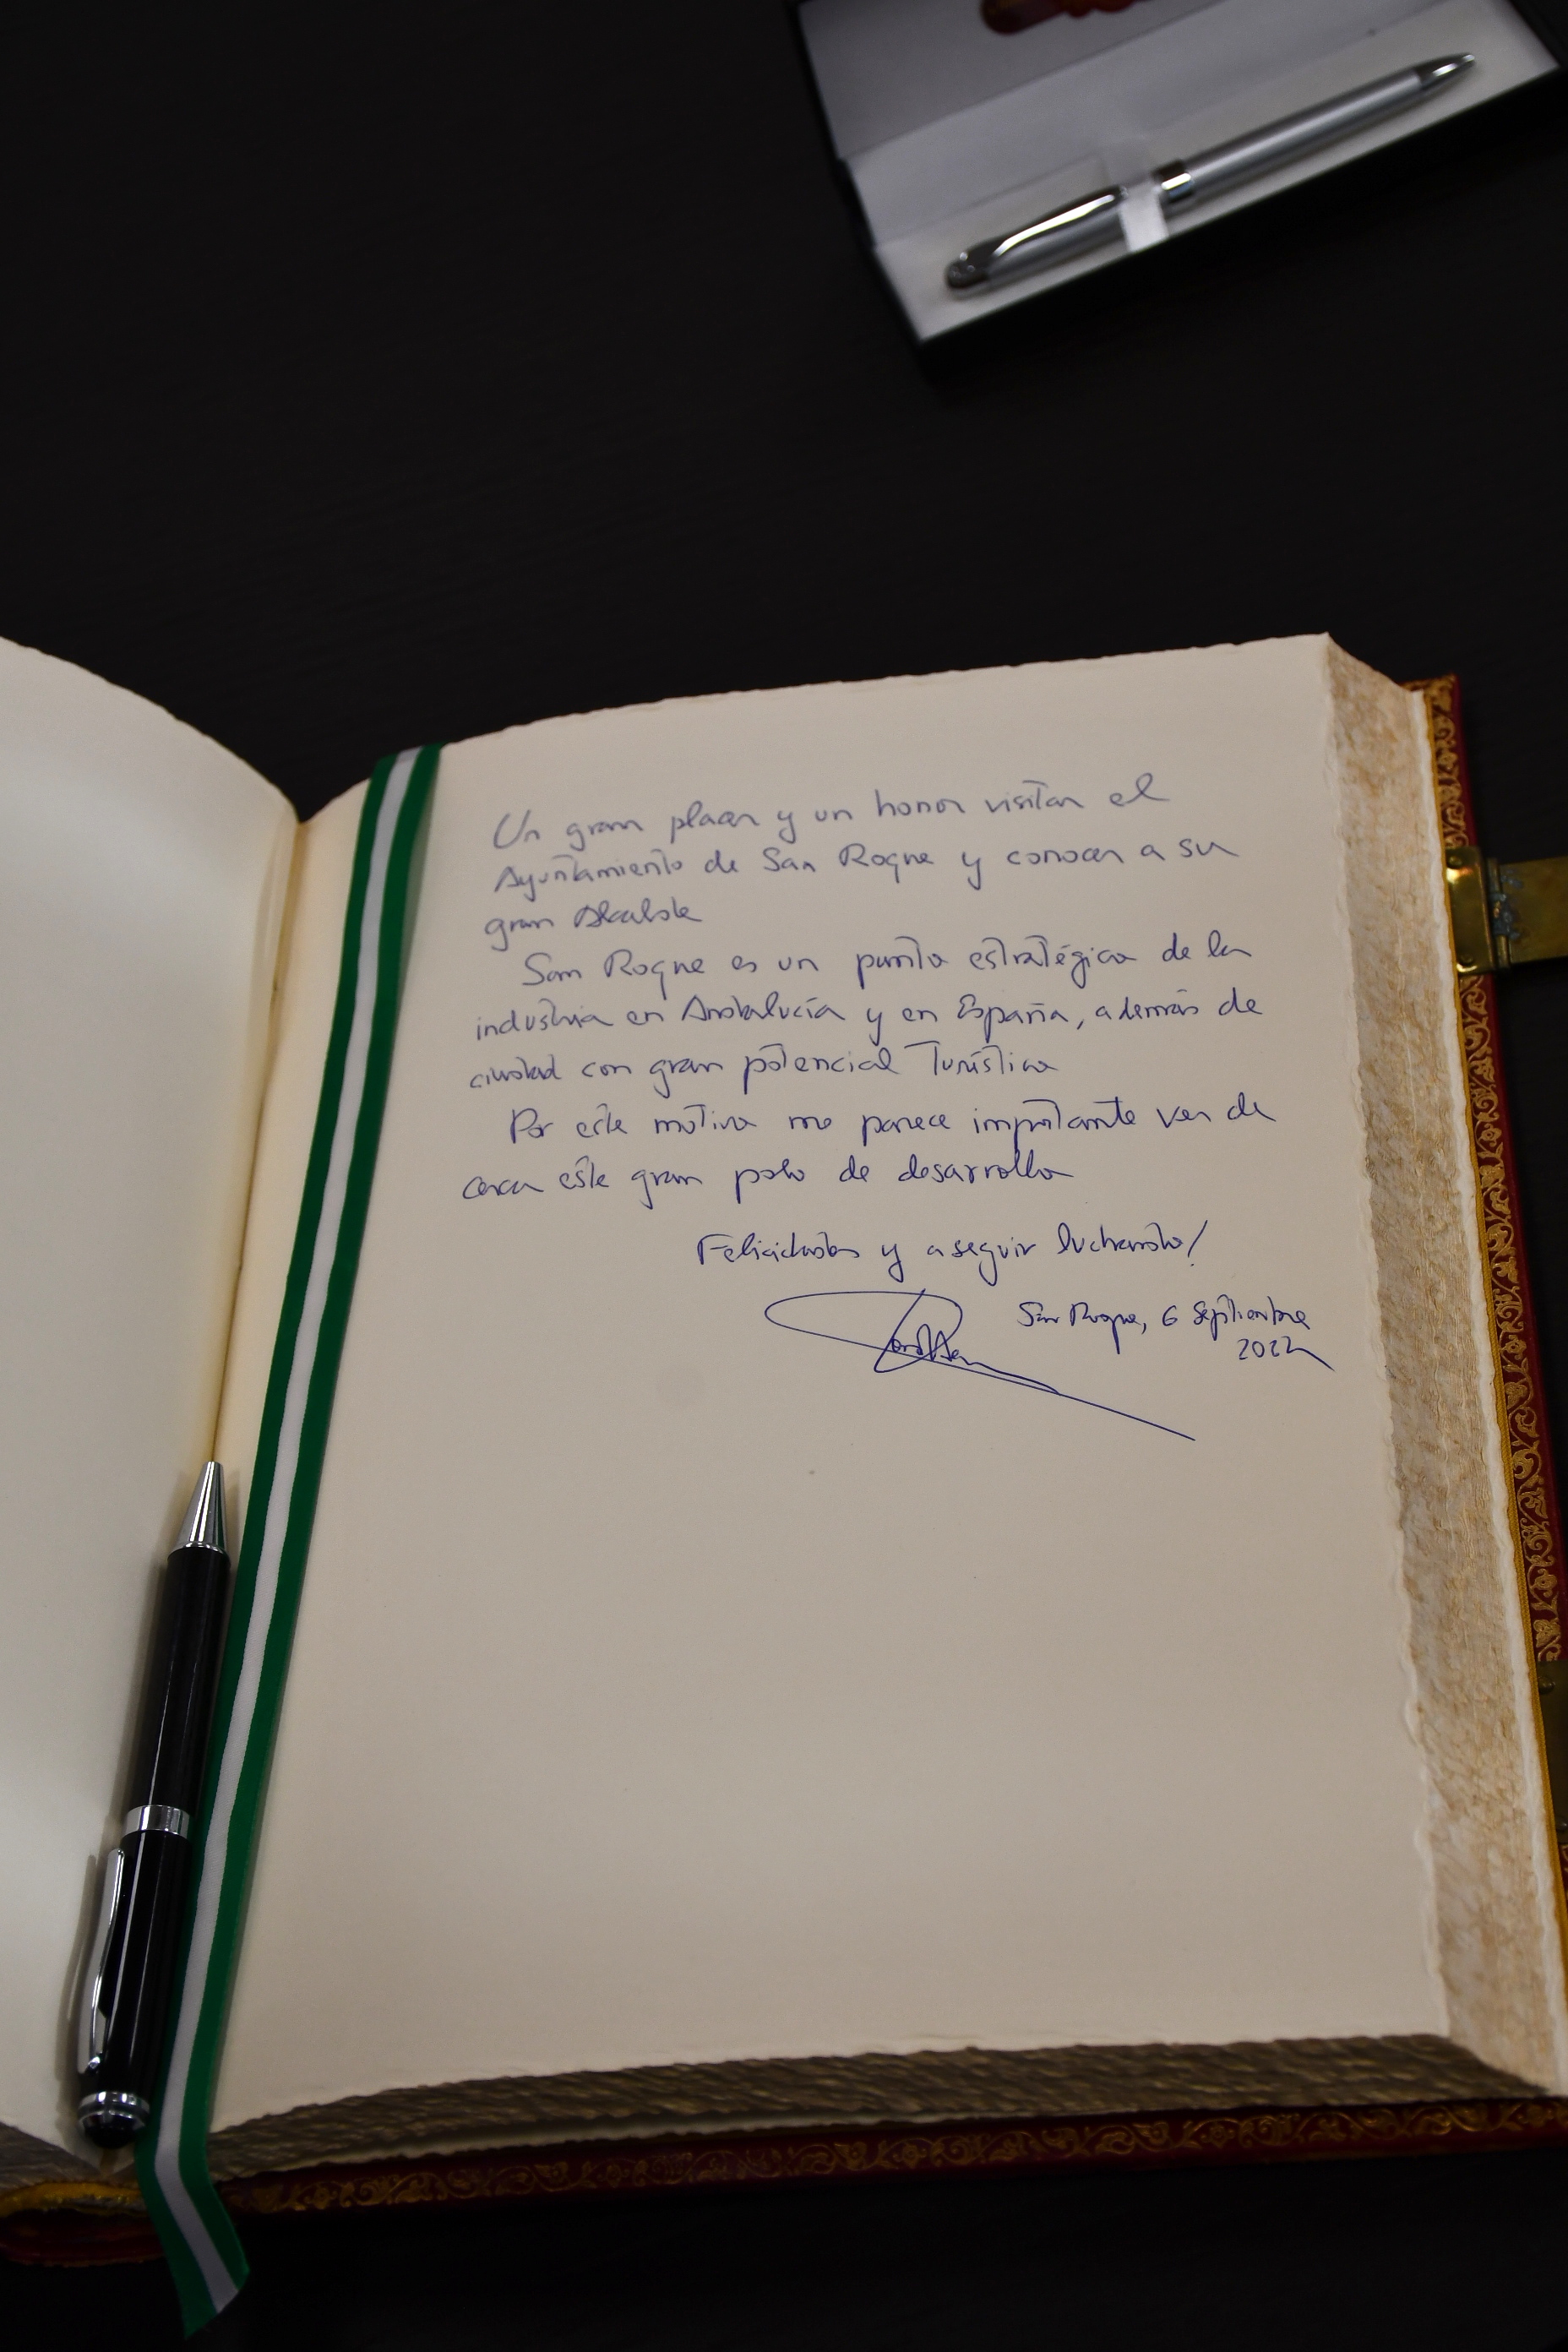 Un gran placer y un honor visitar el
Ayuntamiento de San Roque y conocer a su
gran Alcalde
San Roque es un punto estratégico de la
industria en Andalucía y en España, además de
ciudad con gran potencial turístico
Por este motivo me parece importante ver de
cerca este gran polo de desarrollo
Felicidades y a seguir luchando!
San Roque, 6 Septiembre
2022